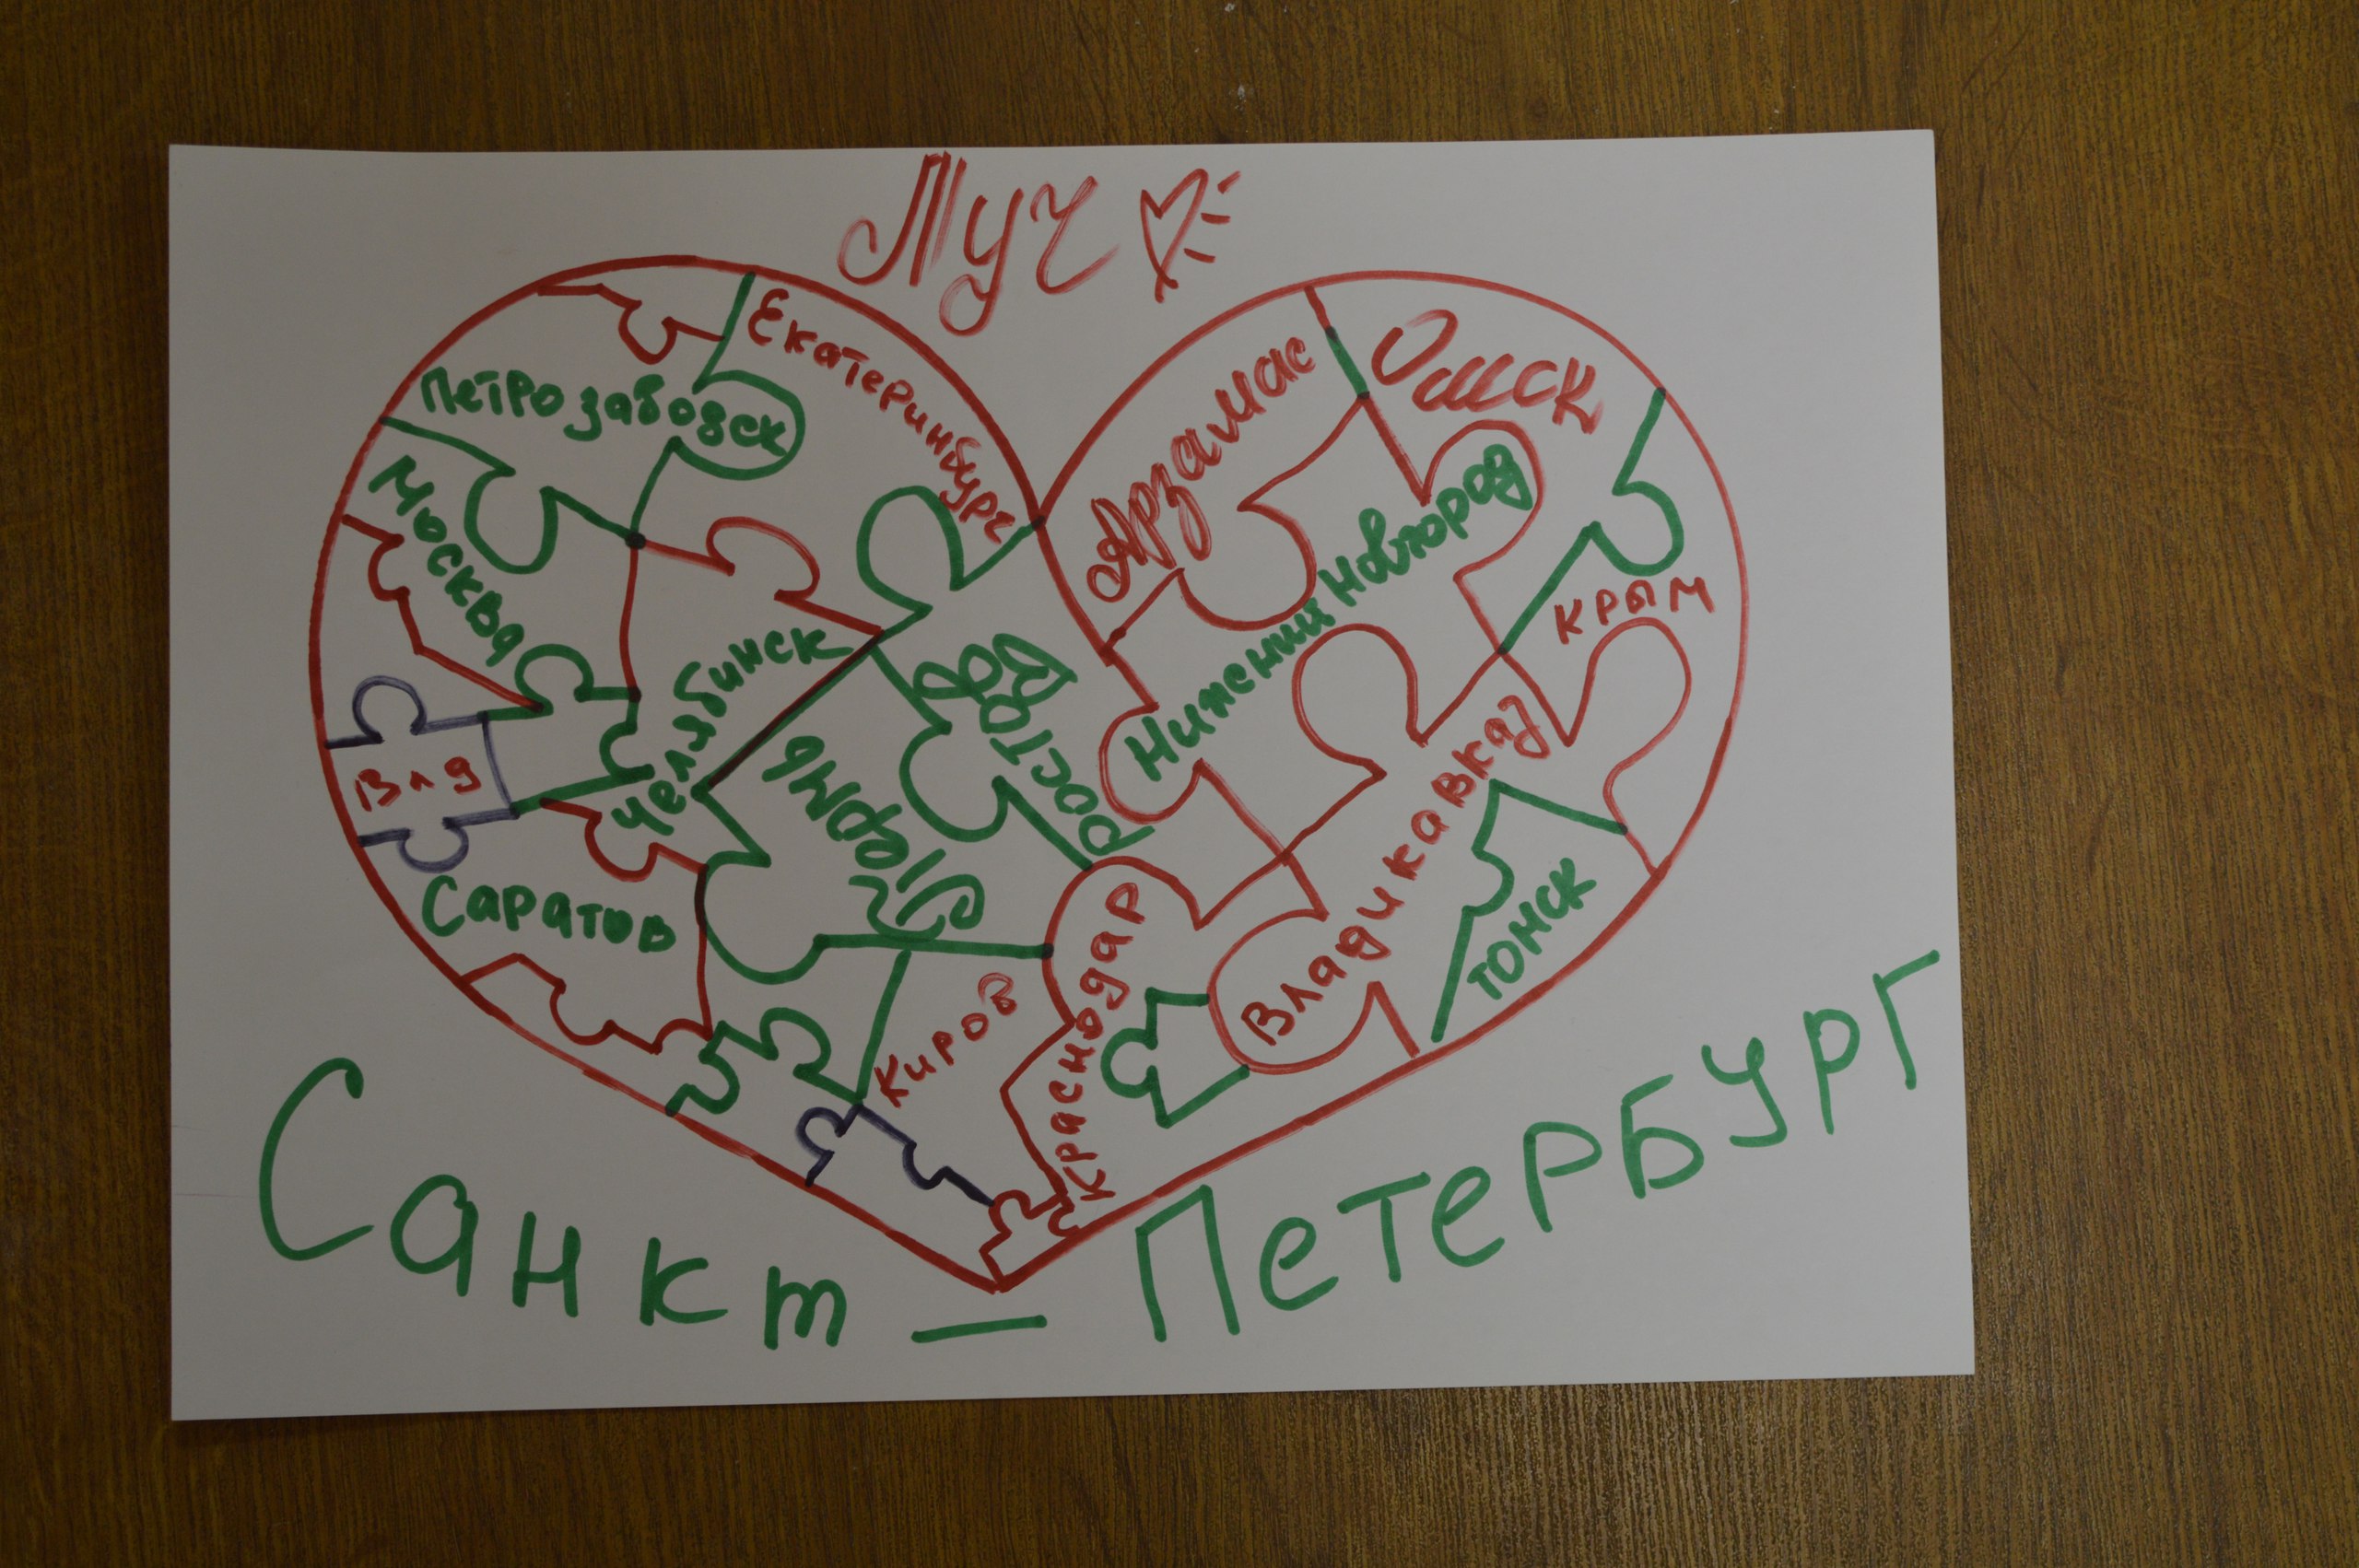 Луч
Екатеринбург
Петрозаводск
Москва
Челябинск
Влд
Саратов
Пермь
Ростов
Киров
Арзамас
Омск
Нижний Новгород
Крым
Владикавказ
Томск
Краснодар
Санкт - Петербург